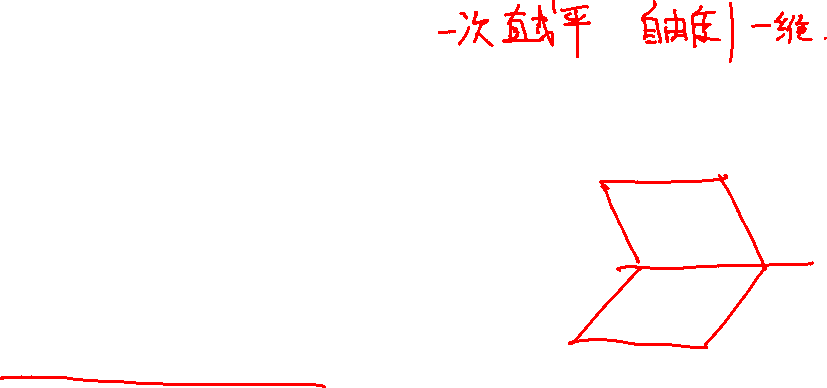 一次 直或平 自由度|一维.